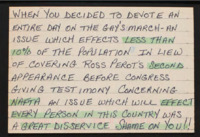 WHEN YOU DECIDED TO DEVOTE AN
ENTIRE DAY ON THE GAY'S MARCH-AN
ISSUE WHICH EFFECTS LESS THAN
10% OF THE POPULATION IN LIEW
OF COVERING ROSS PEROT'S SECOND
APPEARANCE BEFORE CONGRESS
GIVING TESTIMONY CONCERNING
NAFTA AN ISSUE WHICH WILL EFFECT
EVERY PERSON IN THIS COUNTRY WAS
A GREAT DISSERVICE SHAME ON YOU!!